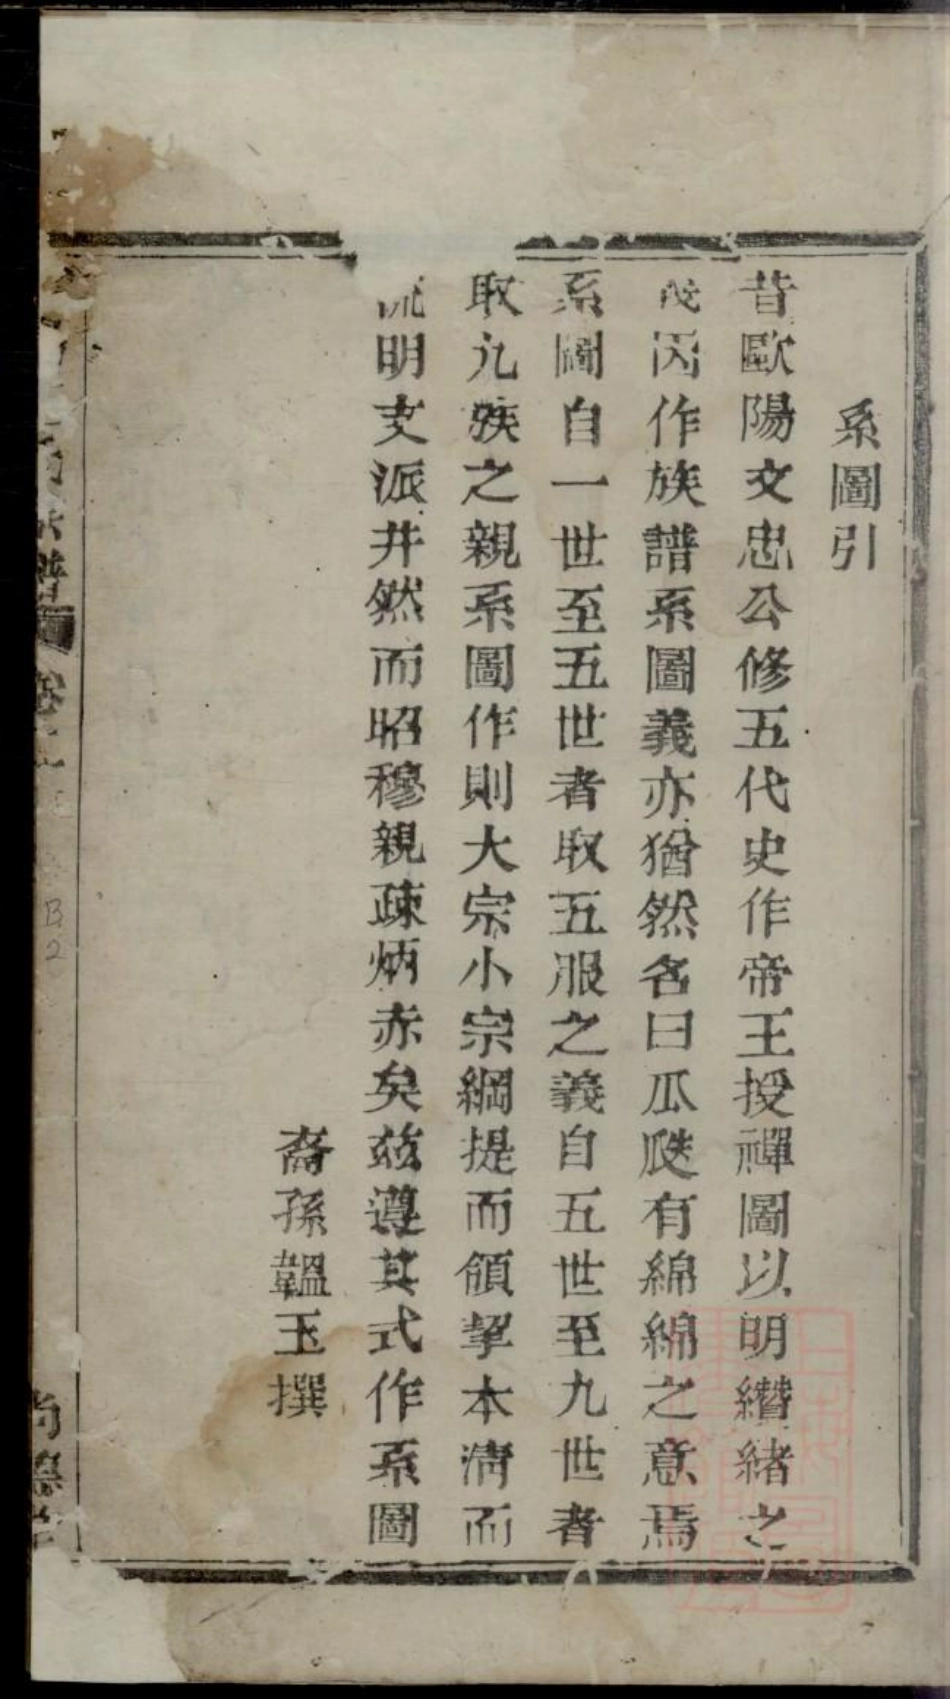 系圖引
昔歐陽文忠公修五代史作帝王授禪圖以明纘緒之
茂因作族譜系圖義亦猶然名曰瓜瓞有綿綿之意焉
系圖自一世至五世者取五服之義自五世至九世者
取九族之親系圖作則大宗小宗綱提而領挈本清而
流明支派井然而昭穆親疎炳赤矣玆遵其式作系圖
裔孫韞玉撰
宗譜 卷之
尚德堂
B2